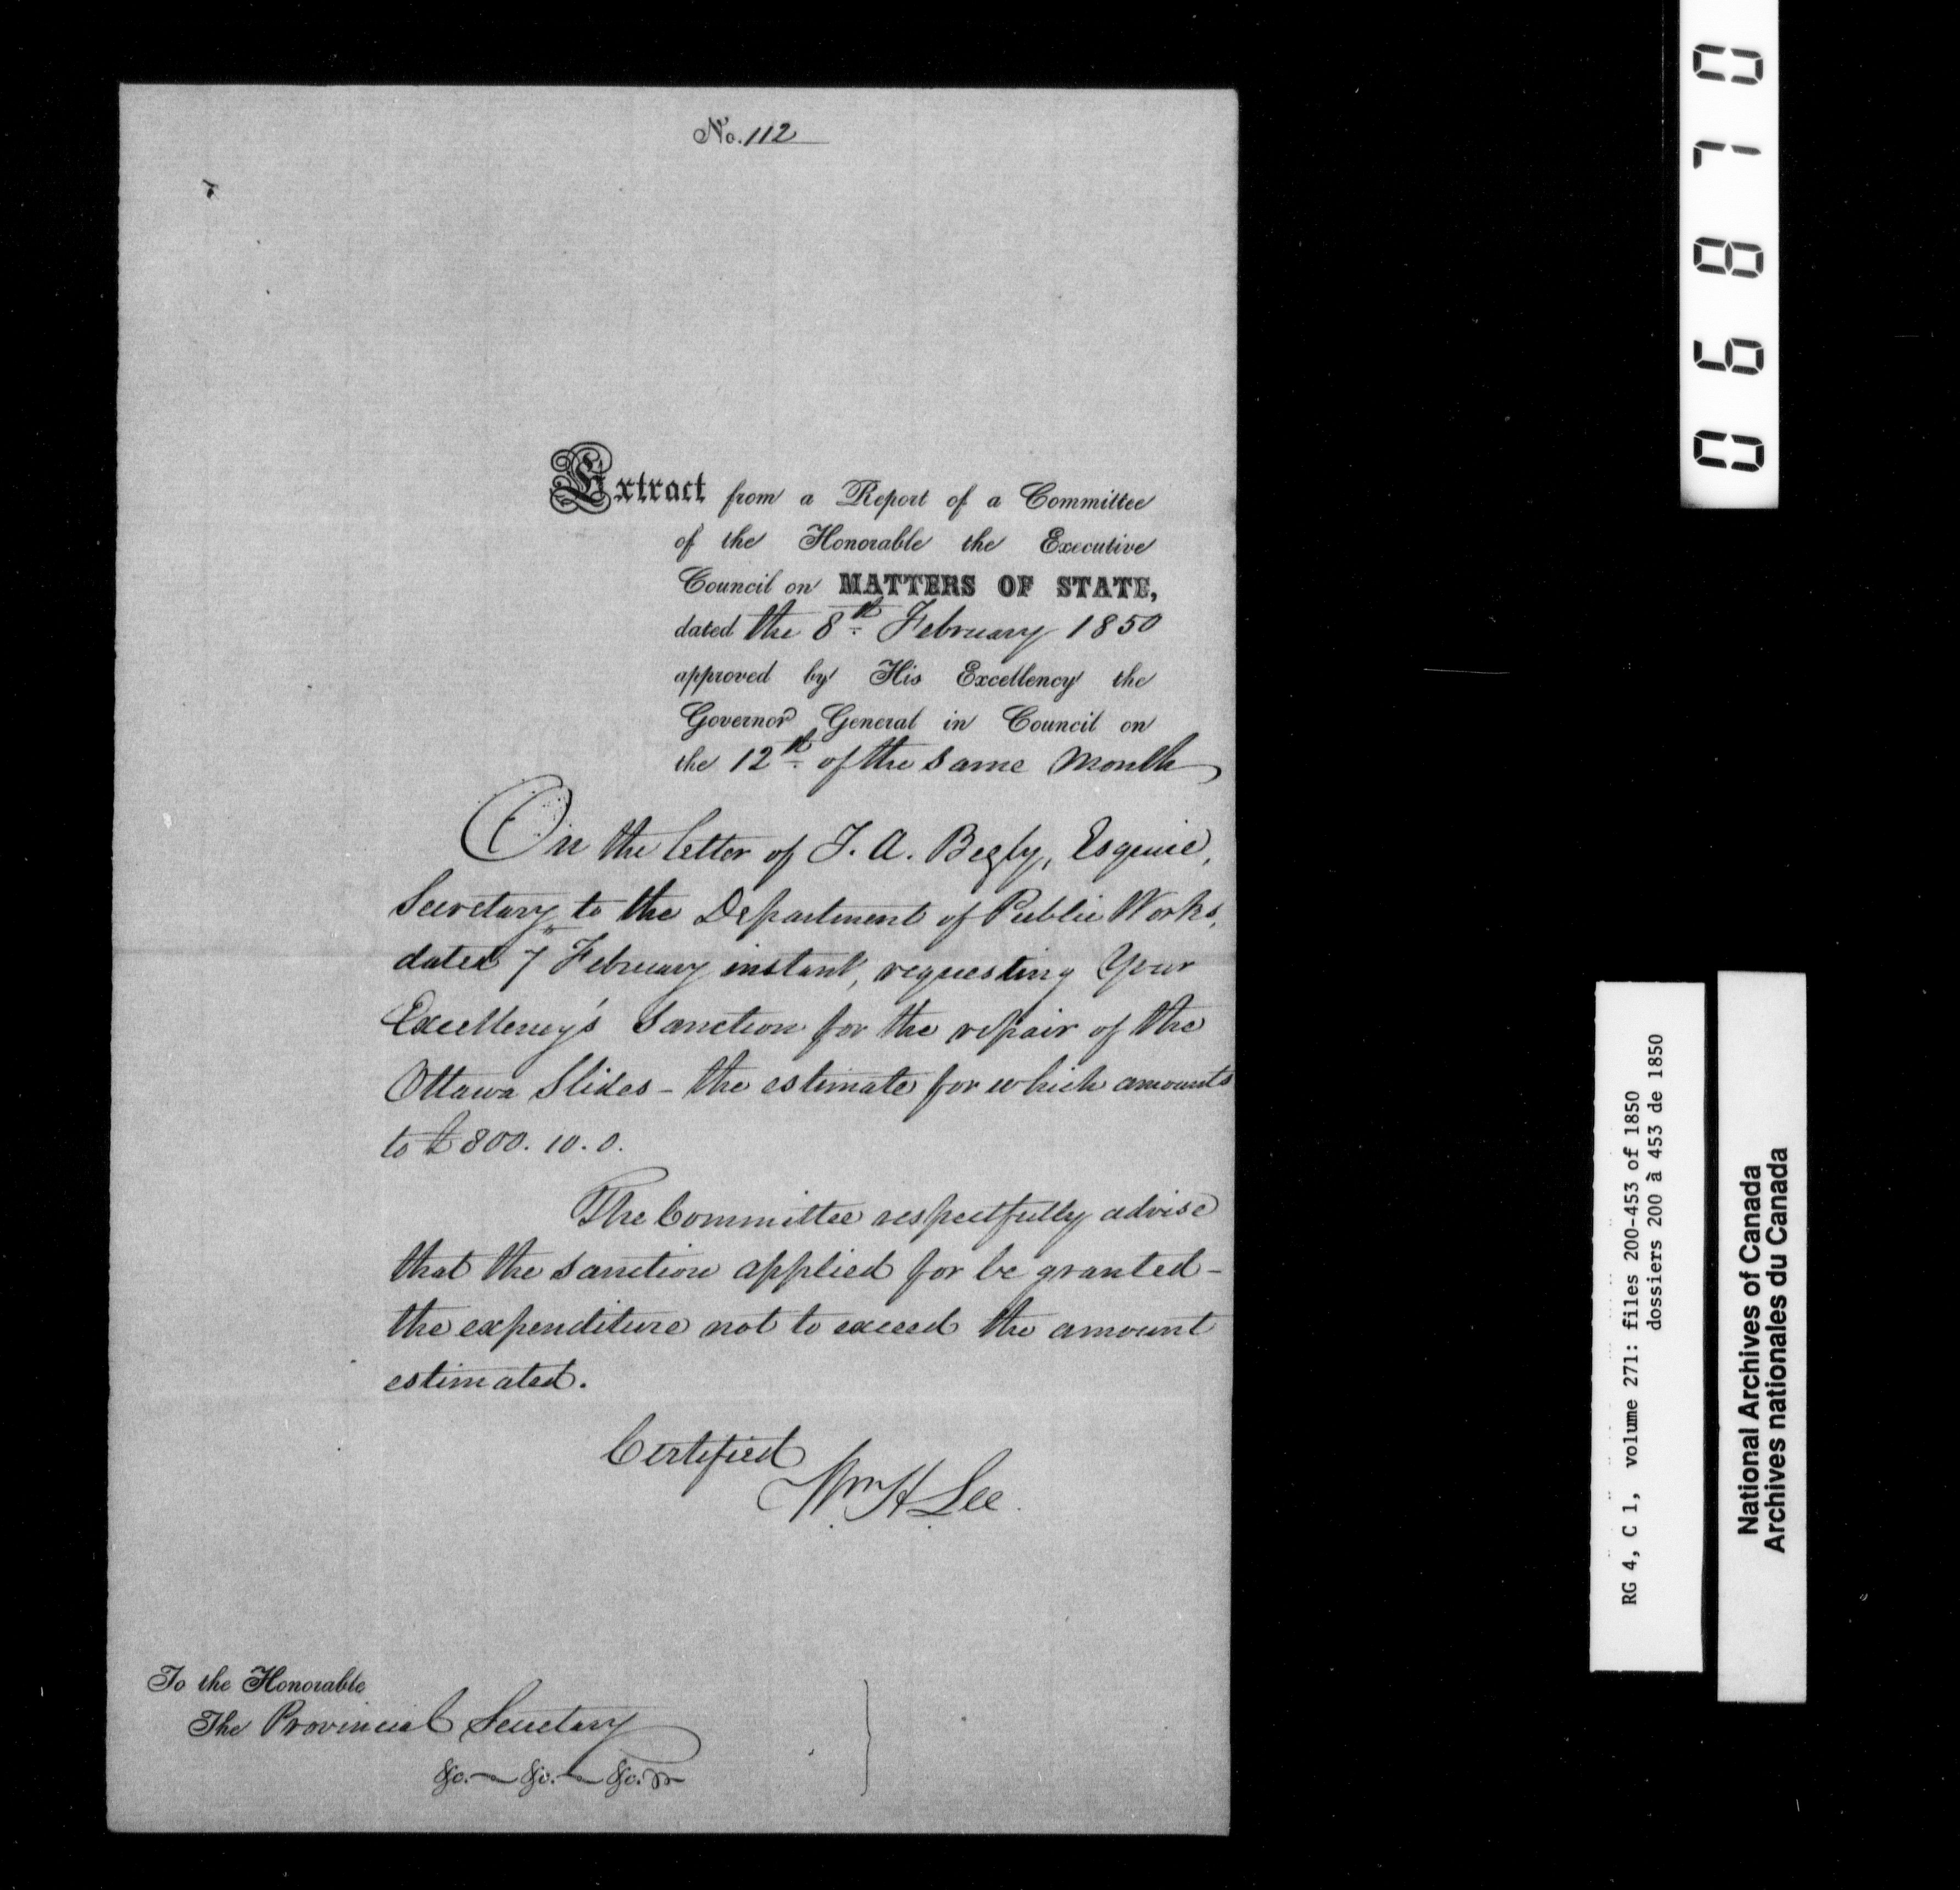 No. 112
Extract from a Report of a Committee
of the Honorable the Executive
Council on MATTERS OF STATE,
dated the 8th February 1850
approved by His Excellency the
Governor General in Council on
the 12th of the same month
On the letter of T. A. Begly, Esquire,
Secretary to the Department of Public Works,
dated 7th February instant, requesting Your
Excellency's Sanction for the repair of the
Ottawa Slides - the estimate for which amounts
to £800. 10. 0.
The Committee respectfully advise
that the sanction applied for be granted -
the expenditure not to exceed the amount
estimated.
Certified
Wm H Lee.
To the Honorable
The Provincial Secretary
&c. &c. &c.
06870
RG 4, C 1, volume 271: files 200-453 of 1850
dossiers 200 à 453 de 1850
National Archives of Canada
Archives nationales du Canada